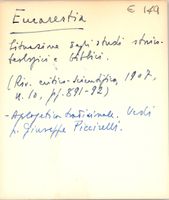 Eucarestia
€ 149
Situazione degli studi storico-
teologici e biblici.
(Riv. critico-scientifica, 1907,
n. 10, pp. 891-92)
- Apologetica tradizionale. Vedi
p. Giuseppe Piccirelli.